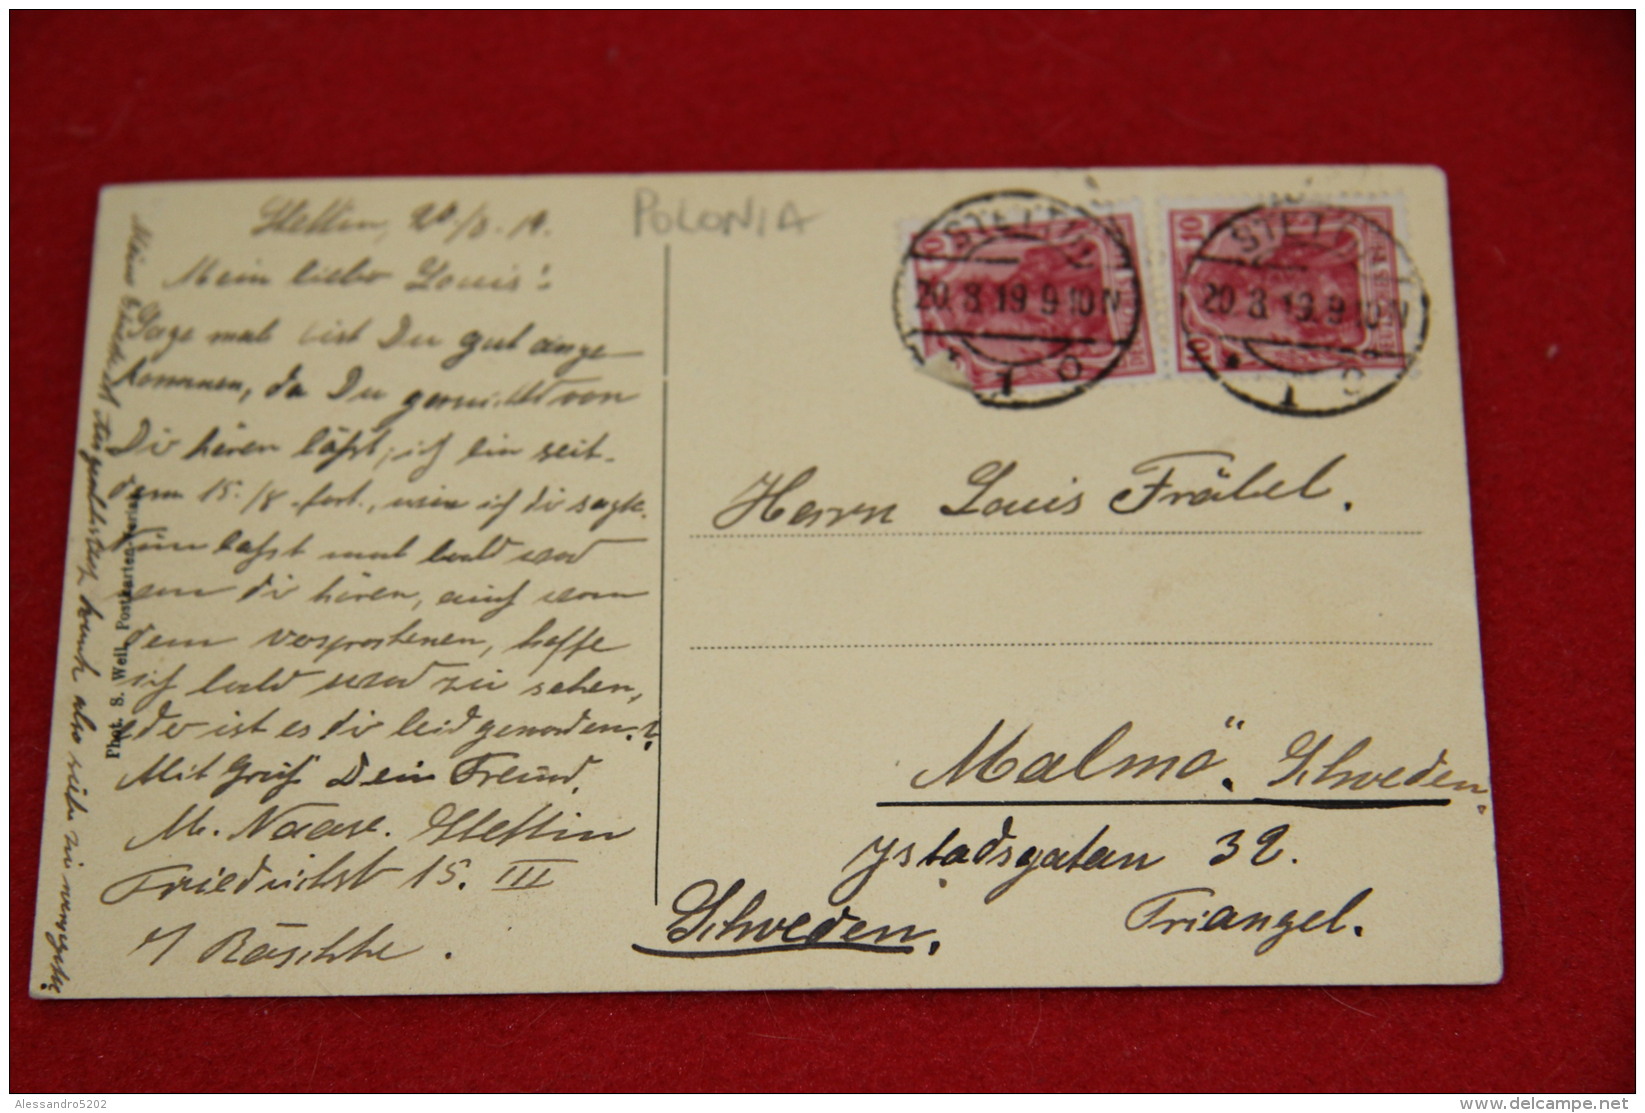 Stettin, 20./8. 19.
POLONIA
Mein lieber Louis!
Sage mal bist Du gut ange
kommen, da Du garnichts von
Dir hören läßt, ich bin seit-
dem 15./8. fort, wie ich dir sagte.
Nun laß mal bald was
von dir hören, auch von
dem versprochenen, hoffe
ich bald was zu sehen,
oder ist es dir leid geworden.?
Mit Gruß Dein Freund.
M. Naase. Stettin
Friedrichst 15. III
b/ Räschke.
also nicht zu vergeßen.
Phot. S. Weil, Postkarten-Verlag
STETTIN
20.8.19.9-10N
1
STETTIN
20.8.19.9-10N
1
10
10
Herrn Louis Fräbel.
Malmö. Schweden.
Ystadsgatan 32.
Triangel.
Schweden.
Alessandro5202
delcampe.net